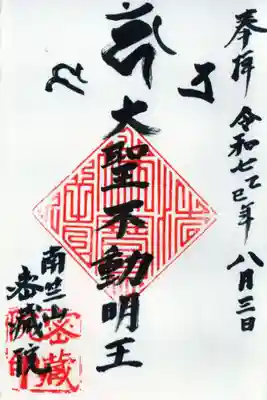 奉拝 令和七乙巳年 八月三日
大聖不動明王
南竺山
密蔵院
密藏
院印